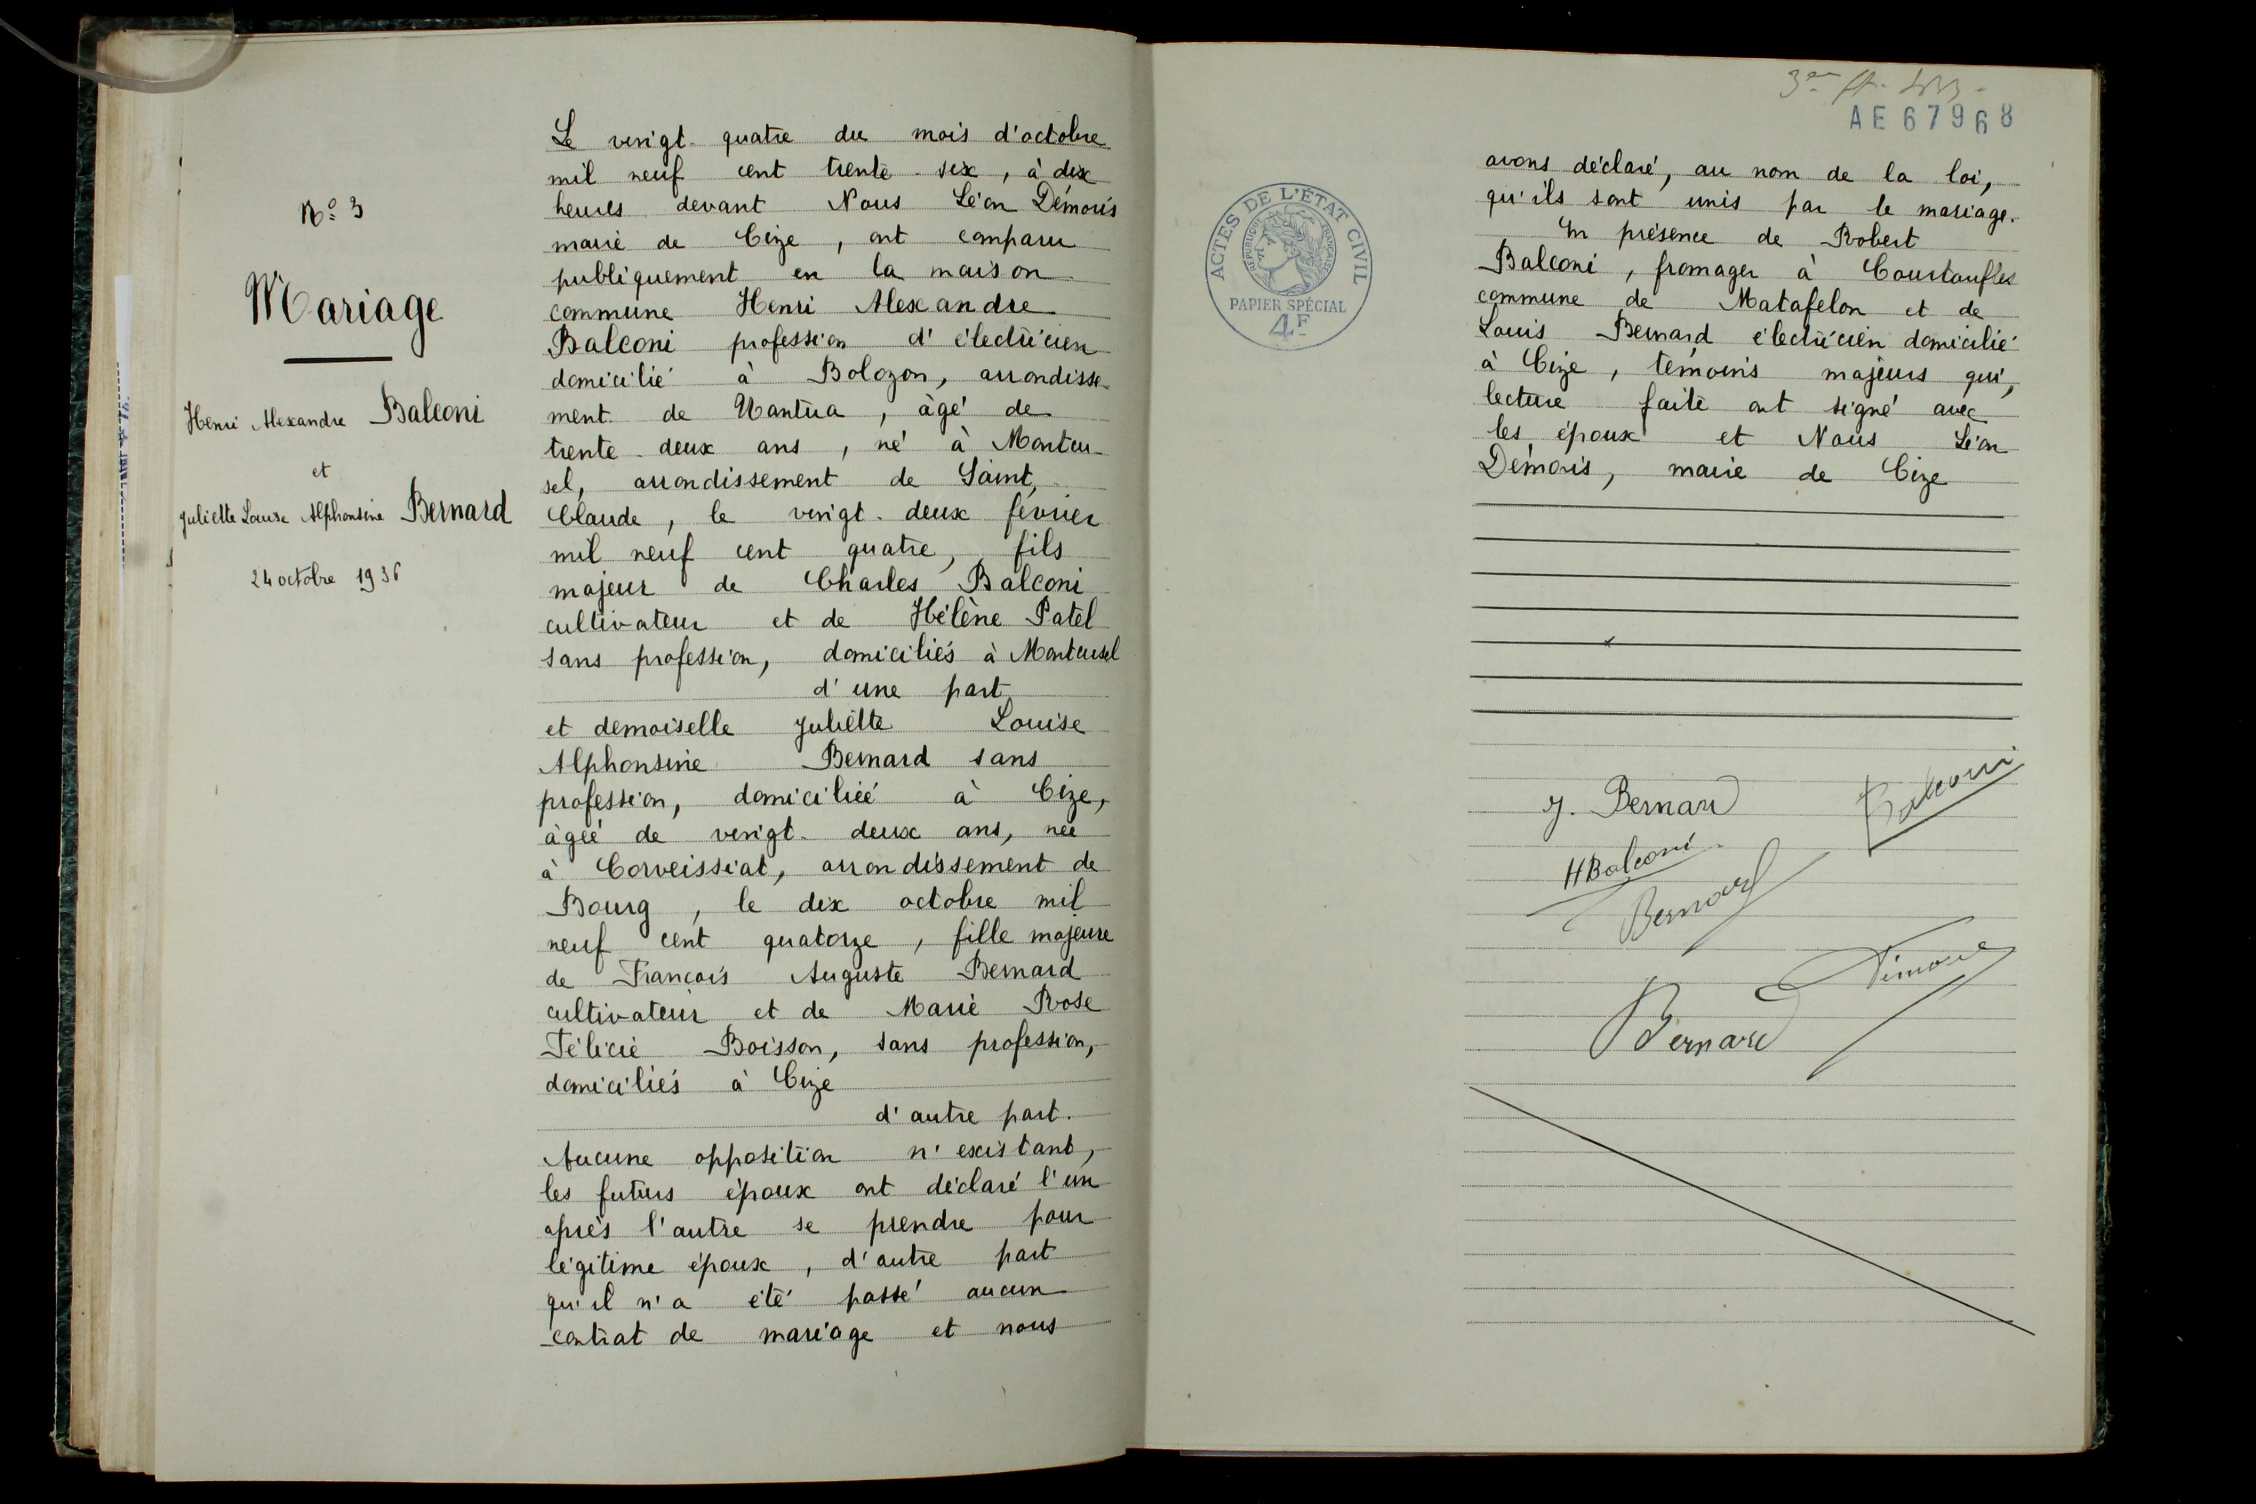 N° 3
Mariage
Henri Alexandre Balconi
et
Juliette Louise Alphonsine Bernard
24 octobre 1936
Le vingt-quatre du mois d'octobre
mil neuf cent trente-six, à dix
heures devant Nous Léon Démoris
maire de Cize, ont comparu
publiquement en la maison
commune Henri Alexandre
Balconi profession d'électricien
domicilié à Bolozon, arrondisse-
ment de Nantua, âgé de
trente-deux ans, né à Monteu-
sel, arrondissement de Saint,
Claude, le vingt-deux février
mil neuf cent quatre, fils
majeur de Charles Balconi
cultivateur et de Hélène Patel
sans profession, domiciliés à Monteusel
d'une part
et demoiselle Juliette Louise
Alphonsine Bernard sans
profession, domiciliée à Cize,
âgée de vingt-deux ans, née
à Corveissiat, arrondissement de
Bourg, le dix octobre mil
neuf cent quatorze, fille majeure
de François Auguste Bernard
cultivateur et de Marie Rose
Félicie Boisson, sans profession,
domiciliés à Cize
d'autre part.
Aucune opposition n'existant,
les futurs époux ont déclaré l'un
après l'autre se prendre pour
légitime époux, d'autre part
qu'il n'a été passé aucun
contrat de mariage et nous
AE 67968
ACTES DE L'ÉTAT CIVIL
RÉPUBLIQUE FRANÇAISE
PAPIER SPÉCIAL
4F
avons déclaré, au nom de la loi,
qu'ils sont unis par le mariage.
En présence de Robert
Balconi, fromager à Courtoufles
commune de Matafelon et de
Louis Bernard électricien domicilié
à Cize, témoins majeurs qui,
lecture faite ont signé avec
les époux et Nous Léon
Démoris, maire de Cize
J. Bernard
Balconi
HBalconi
Bernard
Démoris
Bernard